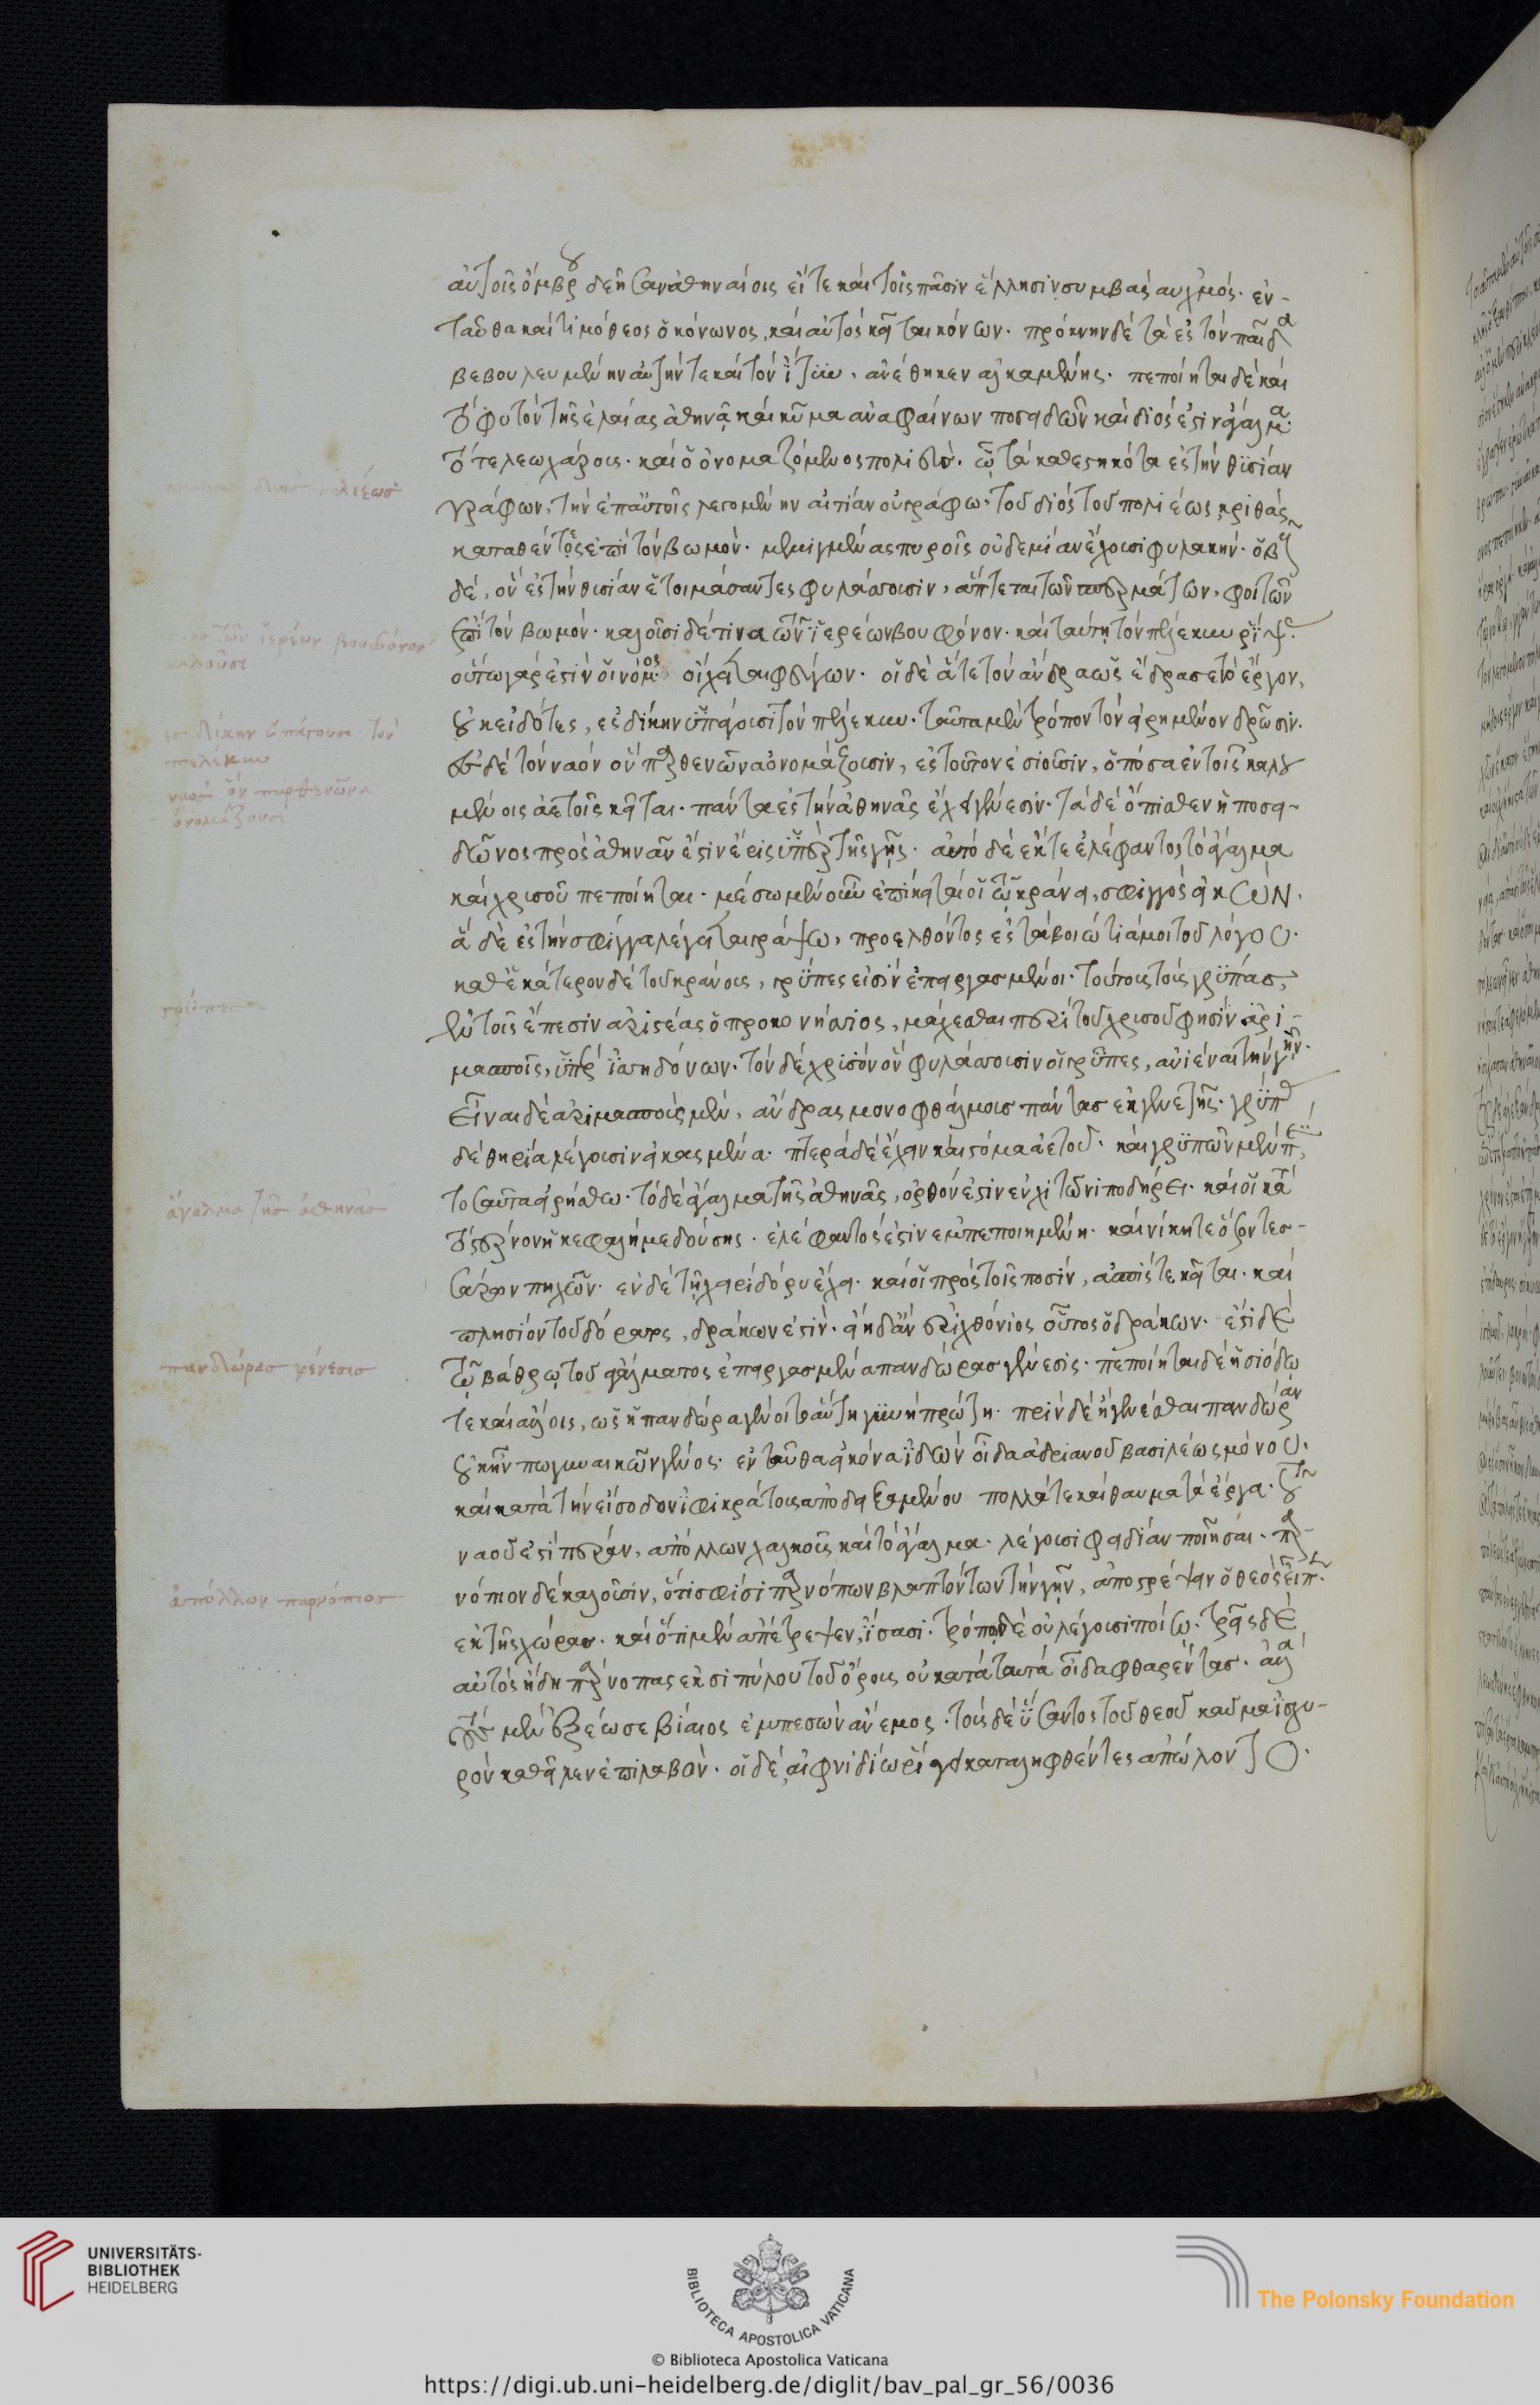 αὐτοῖς ὄμβρου δεῆσαν ἀθηναίοις εἴτε καὶ τοῖς πᾶσιν ἕλλησιν συμβὰς αὐχμός. ἐν-
ταῦθα καὶ τιμόθεος ὁ κόνωνος, καὶ αὐτὸς κεῖται κόνων. πρόκνην δὲ τὰ ἐς τὸν παῖδα
βεβουλευμένην αὐτήν τε καὶ τὸν ἴτυν. ἀνέθηκεν ἀλκαμένης. πεποίηται δὲ καὶ
τὸ φυτὸν τῆς ἐλαίας ἀθηνᾶ, καὶ κῦμα ἀναφαίνων ποσειδῶν καὶ διός ἐστιν ἄγαλμα.
τό τε λεωχάρους. καὶ ὁ ὀνομαζόμενος πολιεύς. ᾧ τὰ καθεστηκότα ἐς τὴν θυσίαν
γράφων, τὴν ἐπ' αὐτοῖς λεγομένην αἰτίαν οὐ γράφω. τοῦ διὸς τοῦ πολιέως κριθὰς
καταθέντες ἐπὶ τὸν βωμὸν. μεμιγμένας πυροῖς οὐδεμίαν ἔχουσι φυλακήν. ὁ βοῦς
δέ, ὃν ἐς τὴν θυσίαν ἑτοιμάσαντες φυλάσσουσιν, ἅπτεται τῶν σπερμάτων, φοιτῶν
ἐπὶ τὸν βωμόν. καλοῦσι δέ τινα τῶν ἱερέων βουφόνον. καὶ ταύτῃ τὸν πέλεκυν ῥίψας
οὕτω γάρ ἐστὶν οἱ νόμος οἴχεται φεύγων. οἱ δὲ ἅτε τὸν ἄνδρα ὡς ἔδρασε τὸ ἔργον,
οὐκ εἰδότες, ἐς δίκην ὑπάγουσι τὸν πέλεκυν. ταῦτα μὲν τρόπον τὸν εἰρημένον δρῶσιν.
ἐς δὲ τὸν ναὸν ὃν παρθενῶνα ὀνομάζουσιν, ἐς τοῦτον ἐσιοῦσιν, ὁπόσα ἐν τοῖς καλου
μένοις ἀετοῖς κεῖται. πάντα ἐς τὴν ἀθηνᾶς ἔχει γένεσιν. τὰ δὲ ὄπισθεν ἡ ποσει-
δῶνος πρὸς ἀθηνᾶν ἐστιν ἔρις ὑπὲρ τῆς γῆς. αὐτὸ δὲ ἔκ τε ἐλέφαντος τὸ ἄγαλμα
καὶ χρυσοῦ πεποίηται. μέσῳ μὲν οὖν ἐπίκειταί οἱ τῷ κράνει, σφιγγὸς εἰκών.
ἃ δὲ ἐς τὴν σφίγγα λέγεται γράψω, προελθόντος ἐς τὰ βοιώτιά μοι τοῦ λόγου.
καθ' ἑκάτερον δὲ τοῦ κράνους, γρῦπες εἰσὶν ἐπειργασμένοι. τούτους τοὺς γρῦπας,
ἐν τοῖς ἔπεσιν ἀριστέας ὁ προκοννήσιος, μάχεσθαι περὶ τοῦ χρυσοῦ φησὶν ἀρι-
μασποῖς, ὑπὲρ ἰσσηδόνων. τὸν δὲ χρυσὸν ὃν φυλάσσουσιν οἱ γρῦπες, ἀνιέναι τὴν γῆν.
εἶναι δὲ ἀριμασποὺς μὲν, ἄνδρας μονοφθάλμους πάντας ἐκ γενετῆς. γρῦπας
δὲ θηρία λέγουσιν εἰκασμένα. πτερὰ δὲ ἔχειν καὶ στόμα ἀετοῦ. καὶ γρυπῶν μὲν πέρι,
τοσαῦτα εἰρήσθω. τὸ δὲ ἄγαλμα τῆς ἀθηνᾶς, ὀρθόν ἐστιν ἐν χιτῶνι ποδήρει. καὶ οἱ κατὰ
τὸ στέρνον ἡ κεφαλὴ μεδούσης. ἐλέφαντός ἐστιν ἐμπεποιημένη. καὶ νίκη τε ὅσον τεσ-
σάρων πηχῶν. ἐν δὲ τῇ χειρὶ δόρυ ἔχει. καὶ οἱ πρὸς τοῖς ποσίν, ἀσπίς τε κεῖται. καὶ
πλησίον τοῦ δόρατος, δράκων ἐστίν. εἴη δ' ἂν ἐριχθόνιος οὗτος ὁ δράκων. ἔστι δὲ
τῷ βάθρῳ τοῦ ἀγάλματος ἐπειργασμένα πανδώρας γένεσις. πεποίηται δὲ ἡσιόδῳ
τε καὶ ἄλλοις, ὡς ἡ πανδώρα γένοιτο αὕτη γυνὴ πρώτη. πρὶν δὲ ἢ γενέσθαι πανδώραν
οὐκ ἦν πω γυναικῶν γένος. ἐνταῦθα εἰκόνα ἰδὼν οἶδα ἀδριανοῦ βασιλέως μόνου.
καὶ κατὰ τὴν εἴσοδον ἰφικράτους ἀποδειξαμένου πολλά τε καὶ θαυμαστὰ ἔργα. τοῦ
ναοῦ ἐστι πέραν, ἀπόλλων χαλκοῦς καὶ τὸ ἄγαλμα. λέγουσι φειδίαν ποιῆσαι. παρ-
νόπιον δὲ καλοῦσιν, ὅτι σφίσι παρνόπων βλαπτόντων τὴν γῆν, ἀποστρέψειν ὁ θεὸς εἶπεν
ἐκ τῆς χώρας. καὶ ὅτι μὲν ἀπέτρεψεν, ἴσασι. τρόπῳ δὲ οὐ λέγουσι ποίῳ. τρεῖς δὲ
αὐτὸς ἤδη πάρνοπας ἐκ σιπύλου τοῦ ὄρους οὐ κατὰ ταυτὰ οἶδα φθαρέντας. ἀλλὰ
τοὺς μὲν ἐξέωσε βίαιος ἐμπεσὼν ἄνεμος. τοὺς δὲ ὕσαντος τοῦ θεοῦ καῦμα ἰσχυ-
ρὸν καθεῖλεν ἐπιλαβὸν. οἱ δὲ, αἰφνιδίῳ ῥίγει καταληφθέντες ἀπώλοντο.
διὸς πολιέως
τῶν ἱερέων βουφόνον
καλοῦσι
ἐς δίκην ὑπάγουσι τὸν
πέλεκυν
ναὸς ὃν παρθενῶνα
ὀνομάζουσι
γρῦπες
ἄγαλμα τῆς ἀθηνᾶς
πανδώρας γένεσις
ἀπόλλων παρνόπιος
UNIVERSITÄTS-
BIBLIOTHEK
HEIDELBERG
BIBLIOTECA APOSTOLICA VATICANA
The Polonsky Foundation
© Biblioteca Apostolica Vaticana
https://digi.ub.uni-heidelberg.de/diglit/bav_pal_gr_56/0036